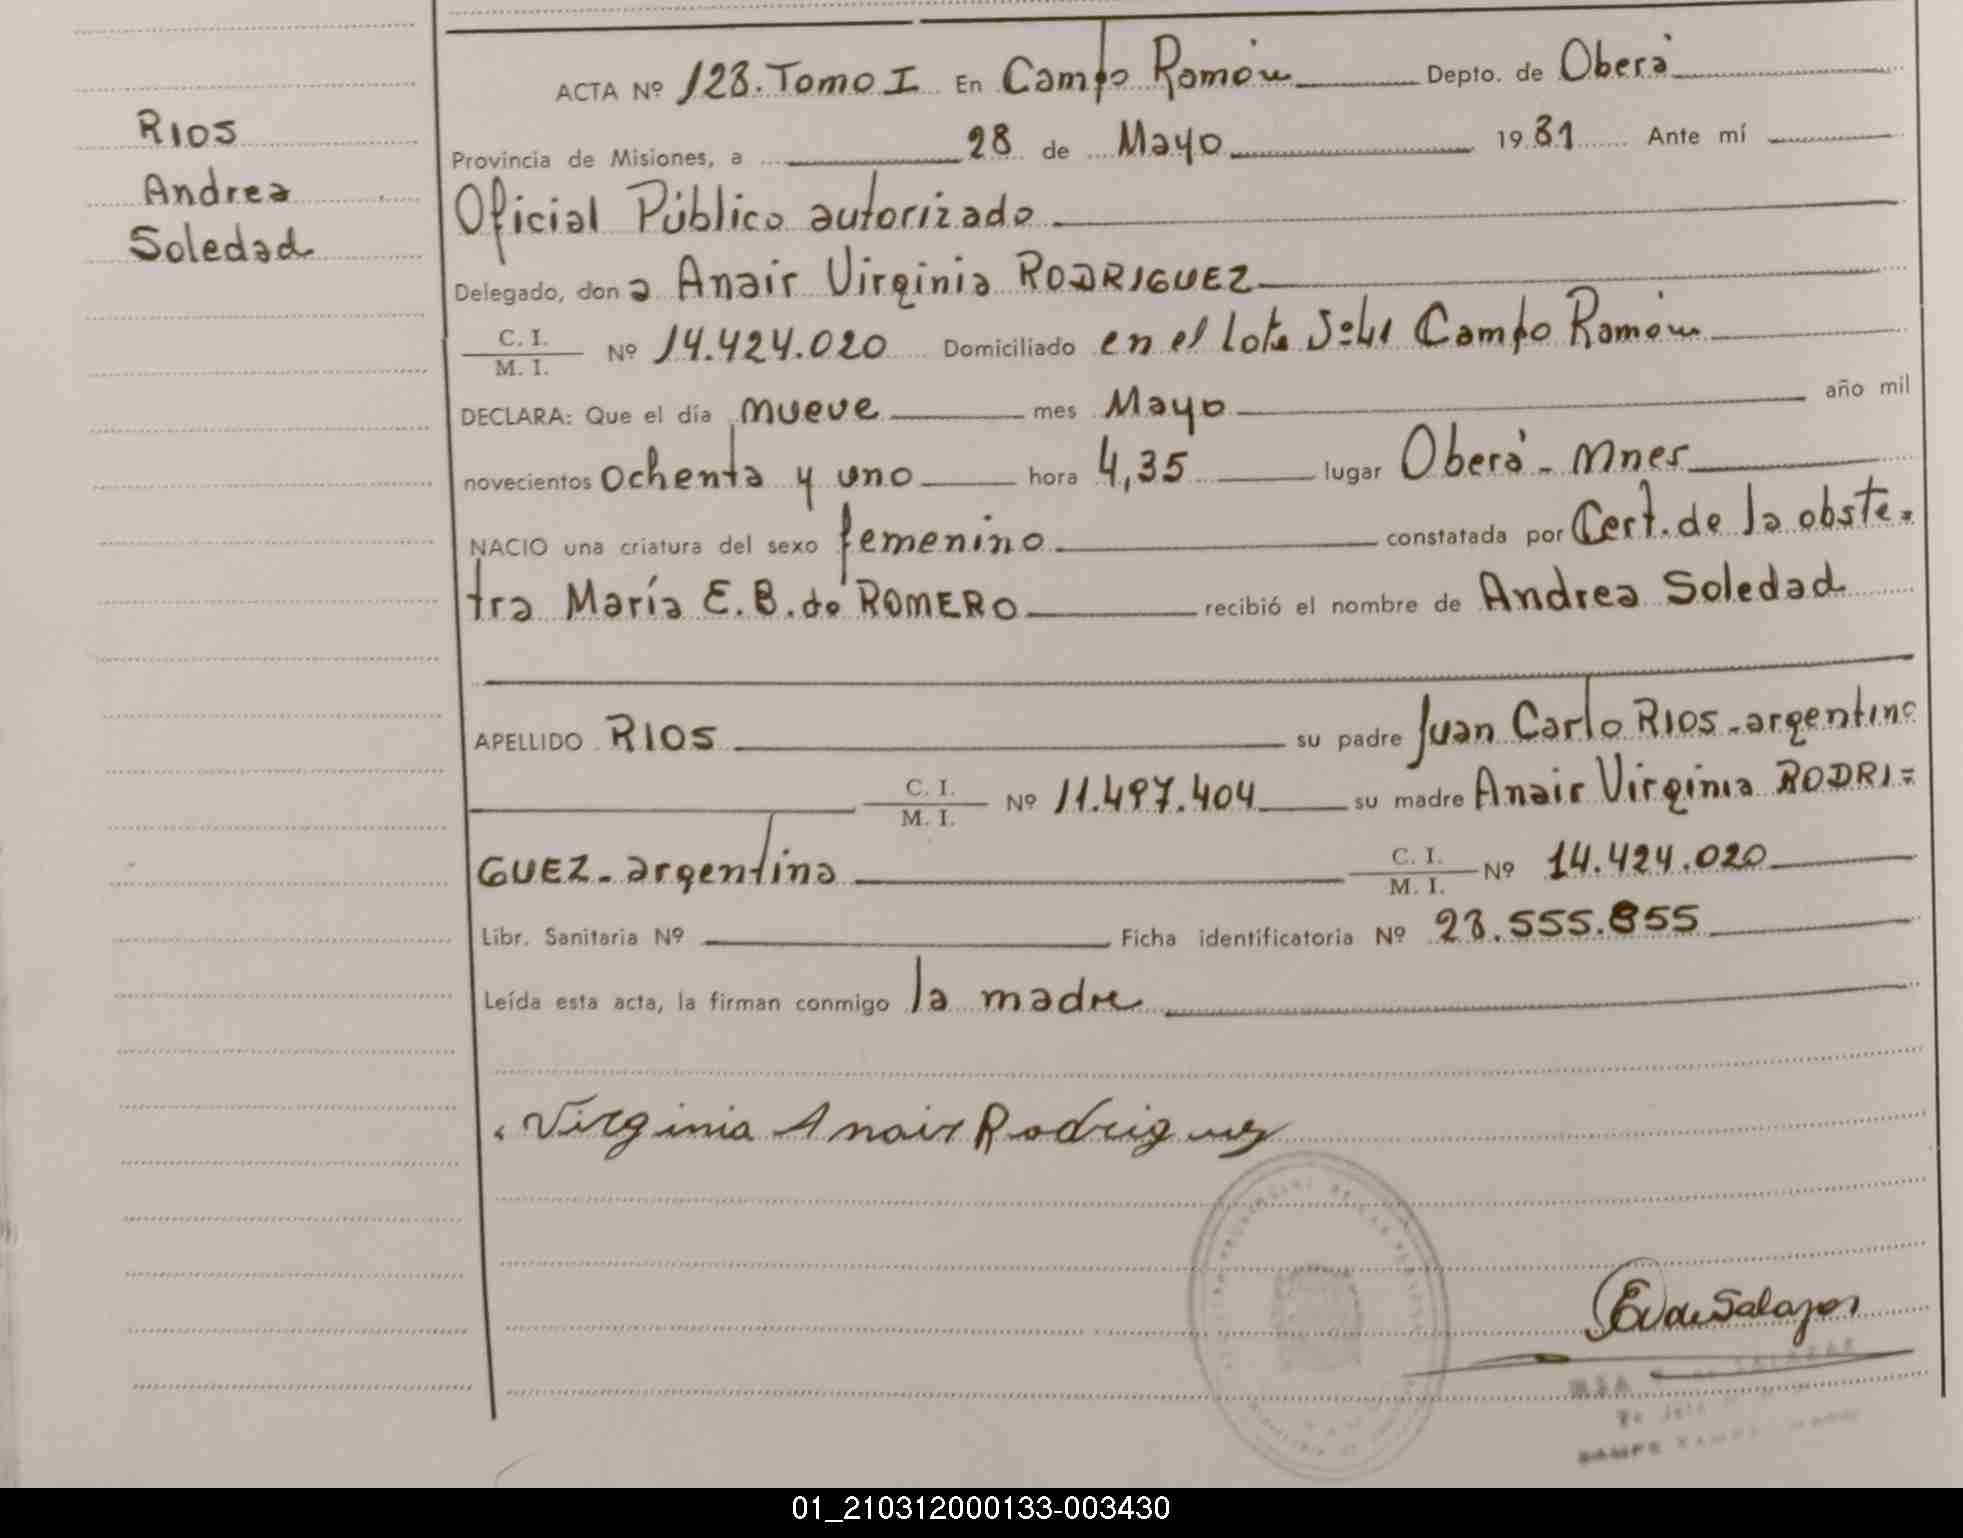 RIOS
Andrea
Soledad
ACTA Nº 128. Tomo I En Campo Ramón Depto. de Oberá
Provincia de Misiones, a 28 de Mayo 1981 Ante mí
Oficial Público autorizado
Delegado, don a Anair Virginia RODRIGUEZ
C. I. / M. I. Nº 14.424.020 Domiciliado en el lote Campo Ramón
DECLARA: Que el día nueve mes Mayo año mil
novecientos ochenta y uno hora 4,35 lugar Oberá - Mnes
NACIO una criatura del sexo femenino constatada por Cert. de la obste=
tra María E. B. de ROMERO recibió el nombre de Andrea Soledad
APELLIDO RIOS su padre Juan Carlo RIOS - argentino
C. I. / M. I. Nº 11.497.404 su madre Anair Virginia RODRI=
GUEZ - argentina C. I. / M. I. Nº 14.424.020
Libr. Sanitaria Nº Ficha identificatoria Nº 28.555.855
Leída esta acta, la firman conmigo la madre
Virginia Anair Rodriguez
E V de Salazar
01_210312000133-003430